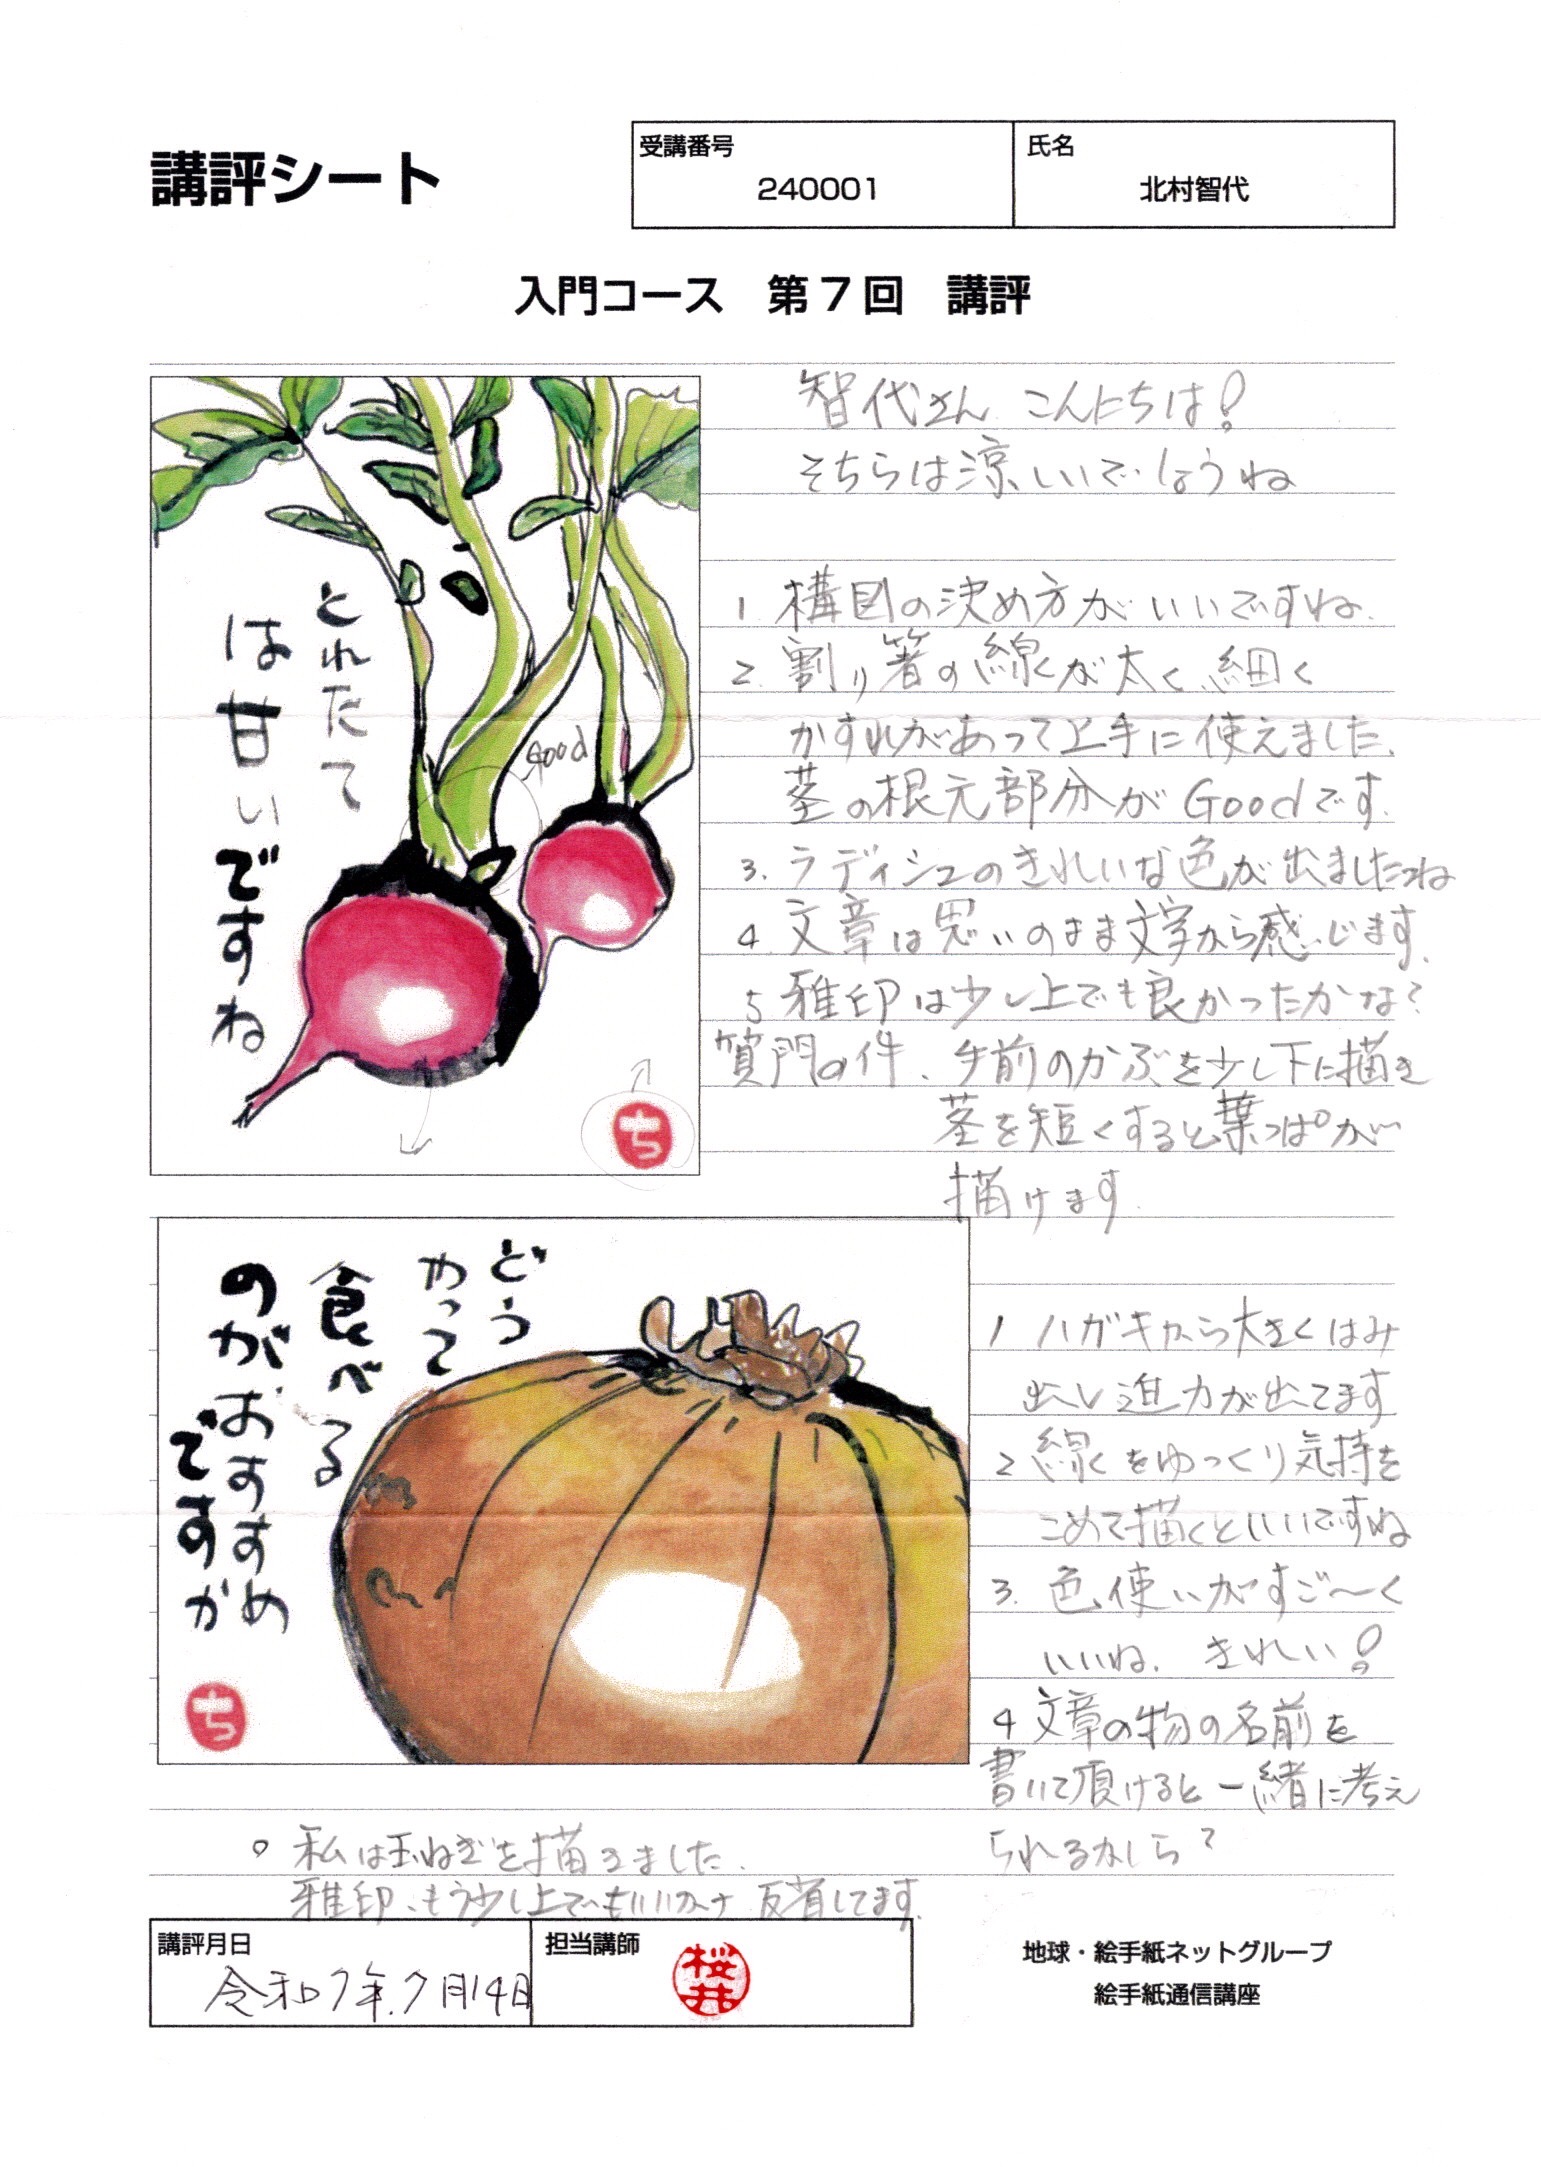 講評シート
受講番号
240001
氏名
北村智代
入門コース 第7回 講評
智代さん こんにちは!
そちらは涼しいでしょうね
1. 構図の決め方がいいですね.
2. 割り箸の線が太く、細く
かすれがあって上手に使えました.
茎の根元部分がGoodです.
3. ラディシュのきれいな色が出ましたね
4. 文章は思いのまま文字から感じます.
5 雅印は少し上でも良かったかな?
質問の件、手前のかぶを少し下に描き
茎を短くすると葉っぱが
描けます.
とれたて
は甘いですね
good
ち
どう
やって
食べる
のがおすすめ
ですか
ち
1 ハガキから大きくはみ
出し迫力が出てます
2 線をゆっくり気持を
こめて描くといいですね
3. 色使いがすご〜く
いいね. きれい!
4 文章の物の名前を
書いて頂けると一緒に考え
られるかしら?
○ 私は玉ねぎを描きました.
雅印、もう少し上でもいいかナ 反省してます.
講評月日
令和7年.7月14日
担当講師
桜井
地球・絵手紙ネットグループ
絵手紙通信講座